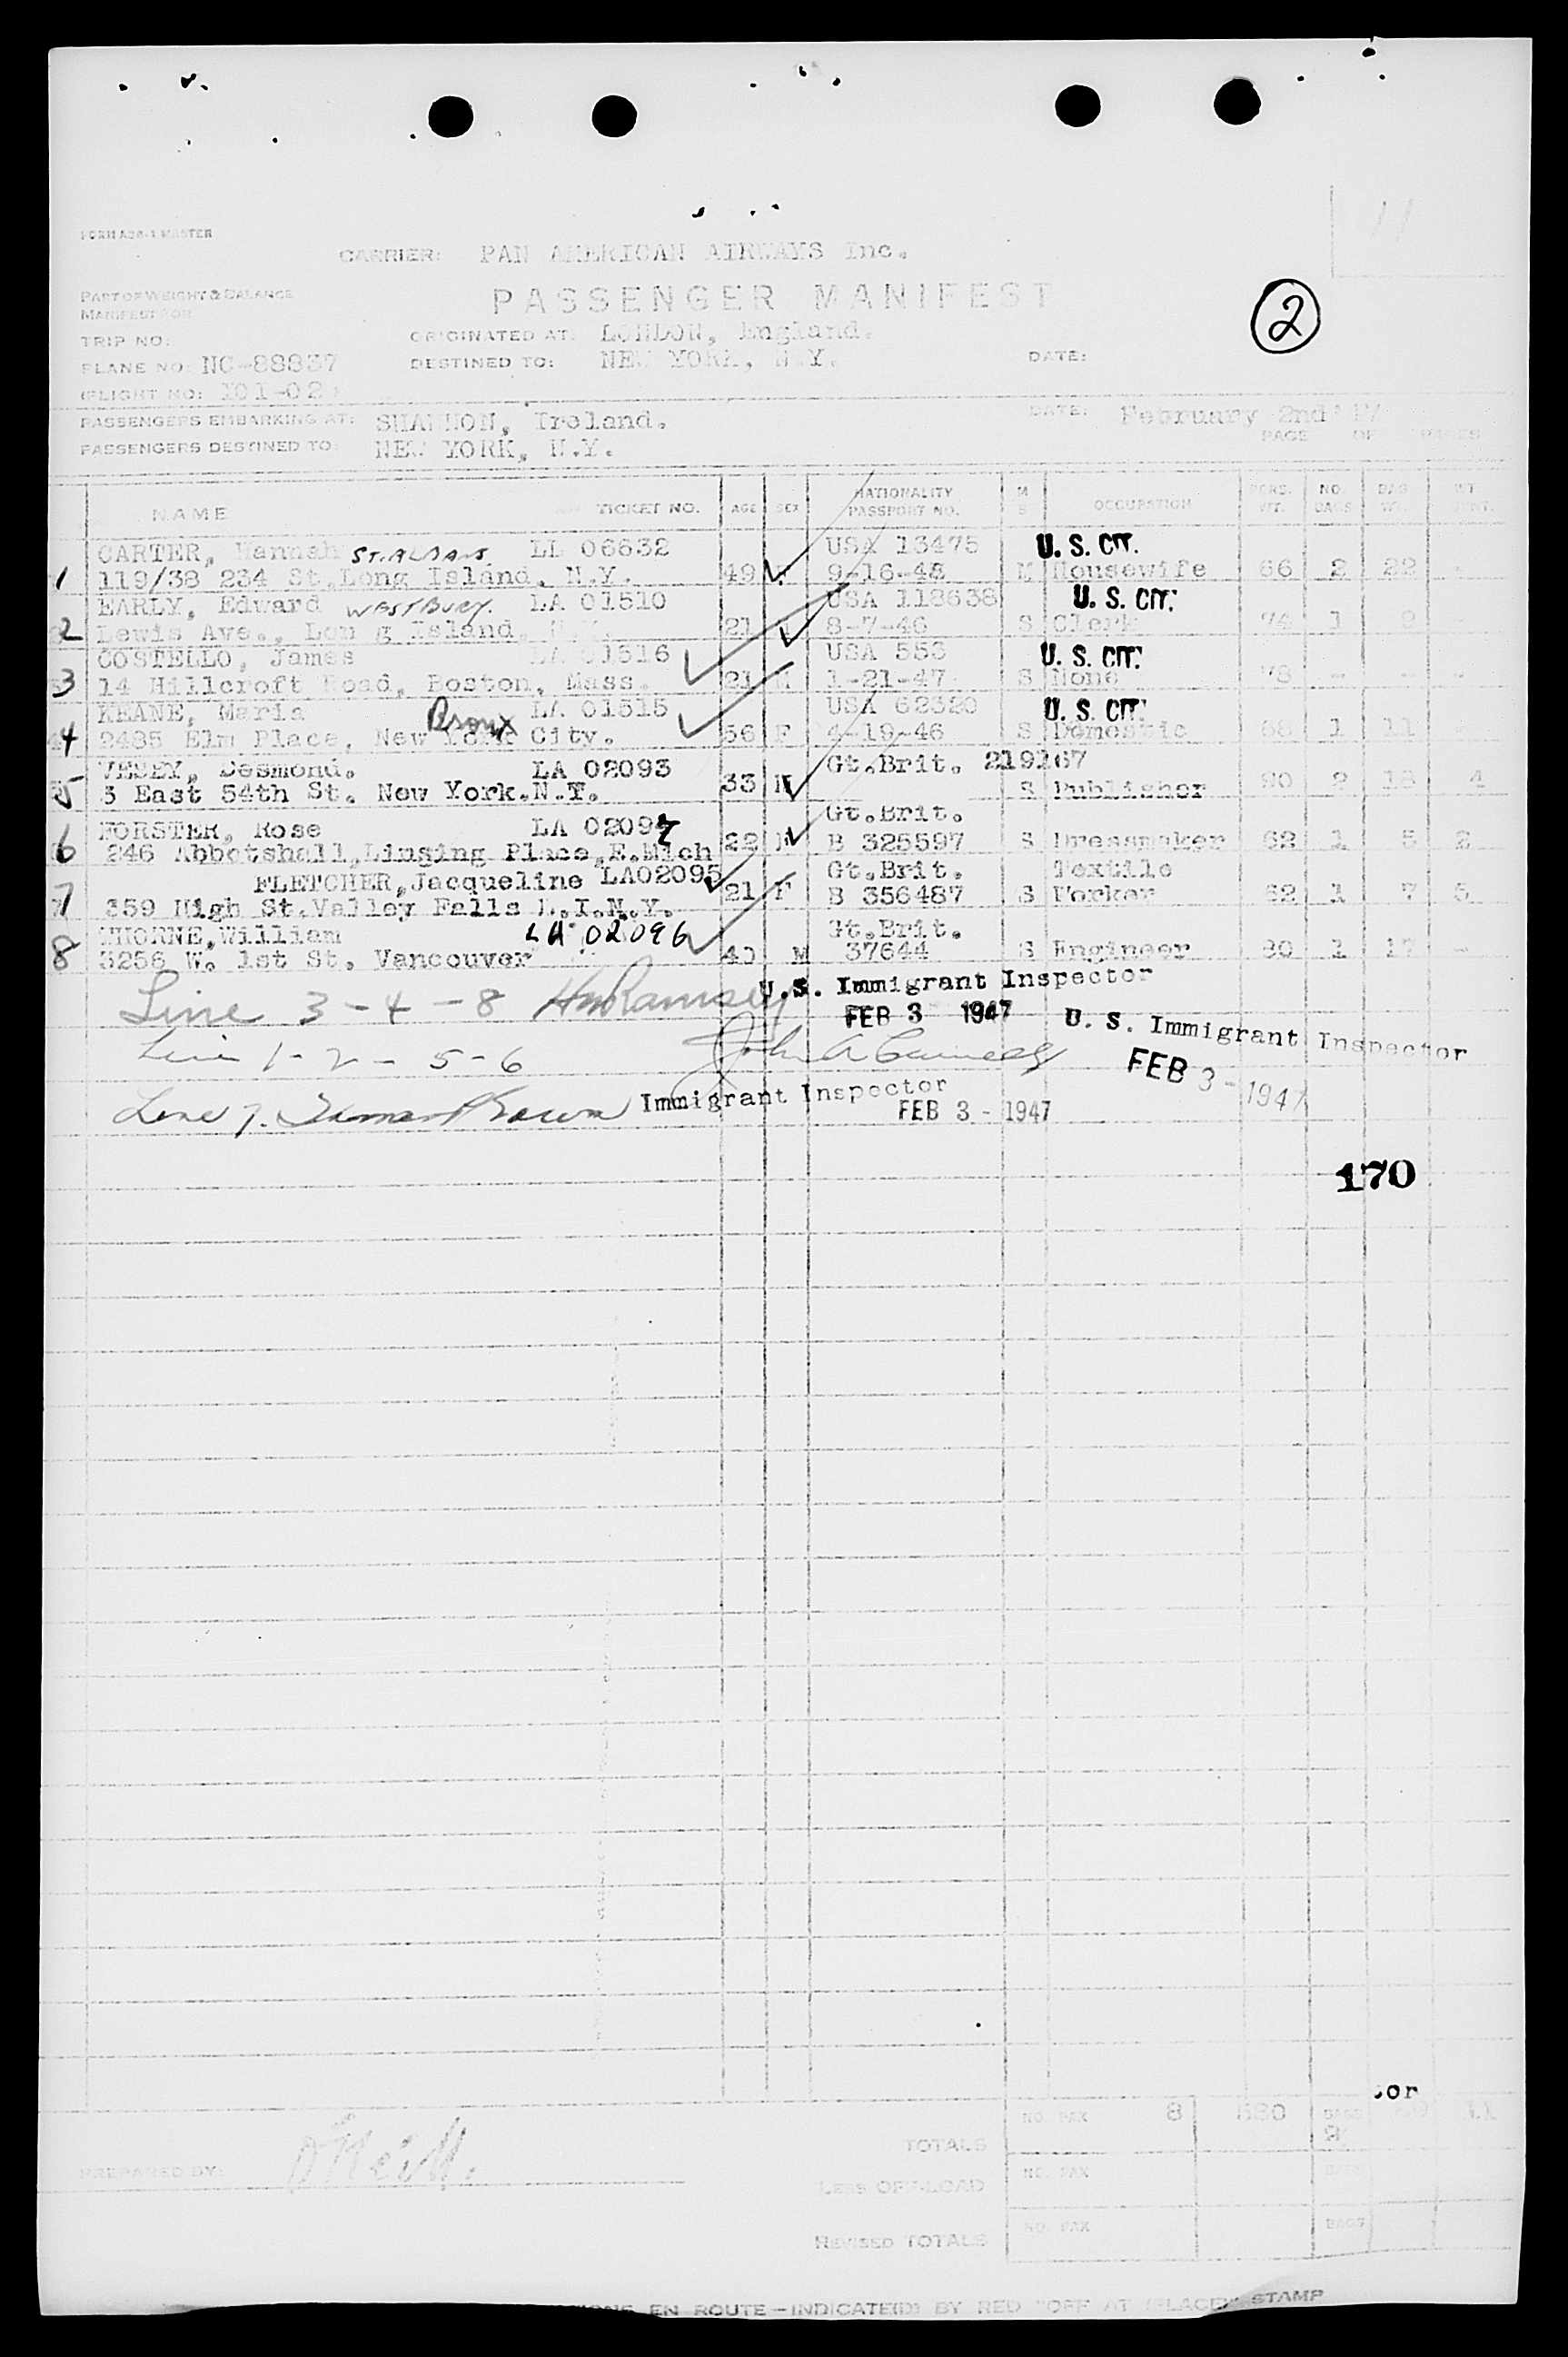 11
FORM A28-1 MASTER
CARRIER: PAN AMERICAN AIRWAYS Inc.
PART OF WEIGHT & BALANCE
PASSENGER MANIFEST
2
MANIFEST FOR
TRIP NO:
ORIGINATED AT: LONDON, England.
PLANE NO: NC-88837
DESTINED TO: NEW YORK, N.Y.
DATE:
FLIGHT NO: 101-02
PASSENGERS EMBARKING AT: SHANNON, Ireland.
DATE: February 2nd
PAGE OF PAGES
PASSENGERS DESTINED TO: NEW YORK, N.Y.
NAME TICKET NO. AGE SEX NATIONALITY PASSPORT NO. M S OCCUPATION PERS. WT. NO. BAGS BAG WT.
CARTER, Hannah ST. ALBANS LL 06632 USA 13475 U. S. CIT.
1 119/38 234 St, Long Island, N.Y. 49 F 9-16-48 M Housewife 66 2 22
EARLY, Edward WESTBURY. LA 01510 USA 118638 U. S. CIT.
2 Lewis Ave., Lon g Island, N.Y. 21 M 8-7-46 S Clerk 74 1 9
COSTELLO, James LA 01516 USA 553 U. S. CIT.
3 14 Hillcroft Road, Boston, Mass. 21 M 1-21-47 S None 78 - - -
KEANE, Maria Bronx LA 01515 USA 62320 U. S. CIT.
4 2485 Elm Place, New York City. 56 F 4-19-46 S Domestic 68 1 11 -
VESEY, Desmond. LA 02093 Gt.Brit. 219167
5 3 East 54th St. New York.N.Y. 33 M S Publisher 90 2 18 4
FORSTER, Rose LA 02094 Gt.Brit.
6 246 Abbotshall, Linging Place, E.Mich 22 F B 325597 S Dressmaker 62 1 5 2
FLETCHER, Jacqueline LA02095 Gt.Brit. Textile
7 359 High St. Valley Falls L.I.N.Y. 21 F B 356487 S Worker 62 1 7 5
THORNE, William LA 02096 Gt.Brit.
8 3256 W. 1st St. Vancouver 40 M 37644 S Engineer 80 1 17 -
Line 3-4-8 HwRamsey U.S. Immigrant Inspector
FEB 3 1947
U. S. Immigrant Inspector
Line 1-2-5-6 John A
FEB 3 - 1947
Line 7. Brown Immigrant Inspector
FEB 3 - 1947
170
tor
NO. PAX 8 580 BAGS
TOTALS 9
PREPARED BY: O'Neill.
LESS OFF-LOAD NO. PAX BAGS
REVISED TOTALS NO. PAX BAGS
EN ROUTE - INDICATE(D) BY RED "OFF AT (PLACE)" STAMP